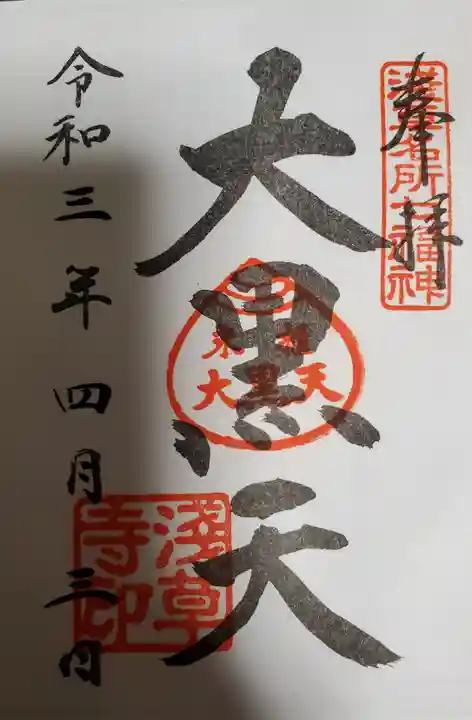 奉拝
浅草名所七福神
大黒天
米
大黒天
浅草
寺印
令和三年四月三日